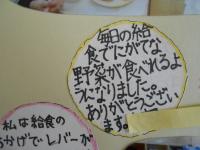 毎日の給
食でにがてな
野菜が食べれるよ
うになりました。
ありがとうござい
ます。
私は給食の
おかげでレバーが